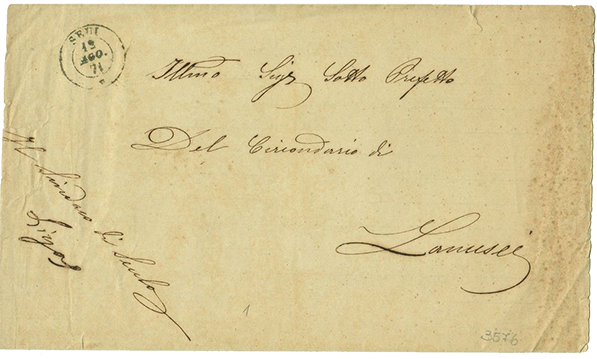 SEUI
12
AGO.
71
Illmo Sigr Sotto Prefetto
Del Circondario di
Lanusei
Il Sindaco di Seulo
1
3576